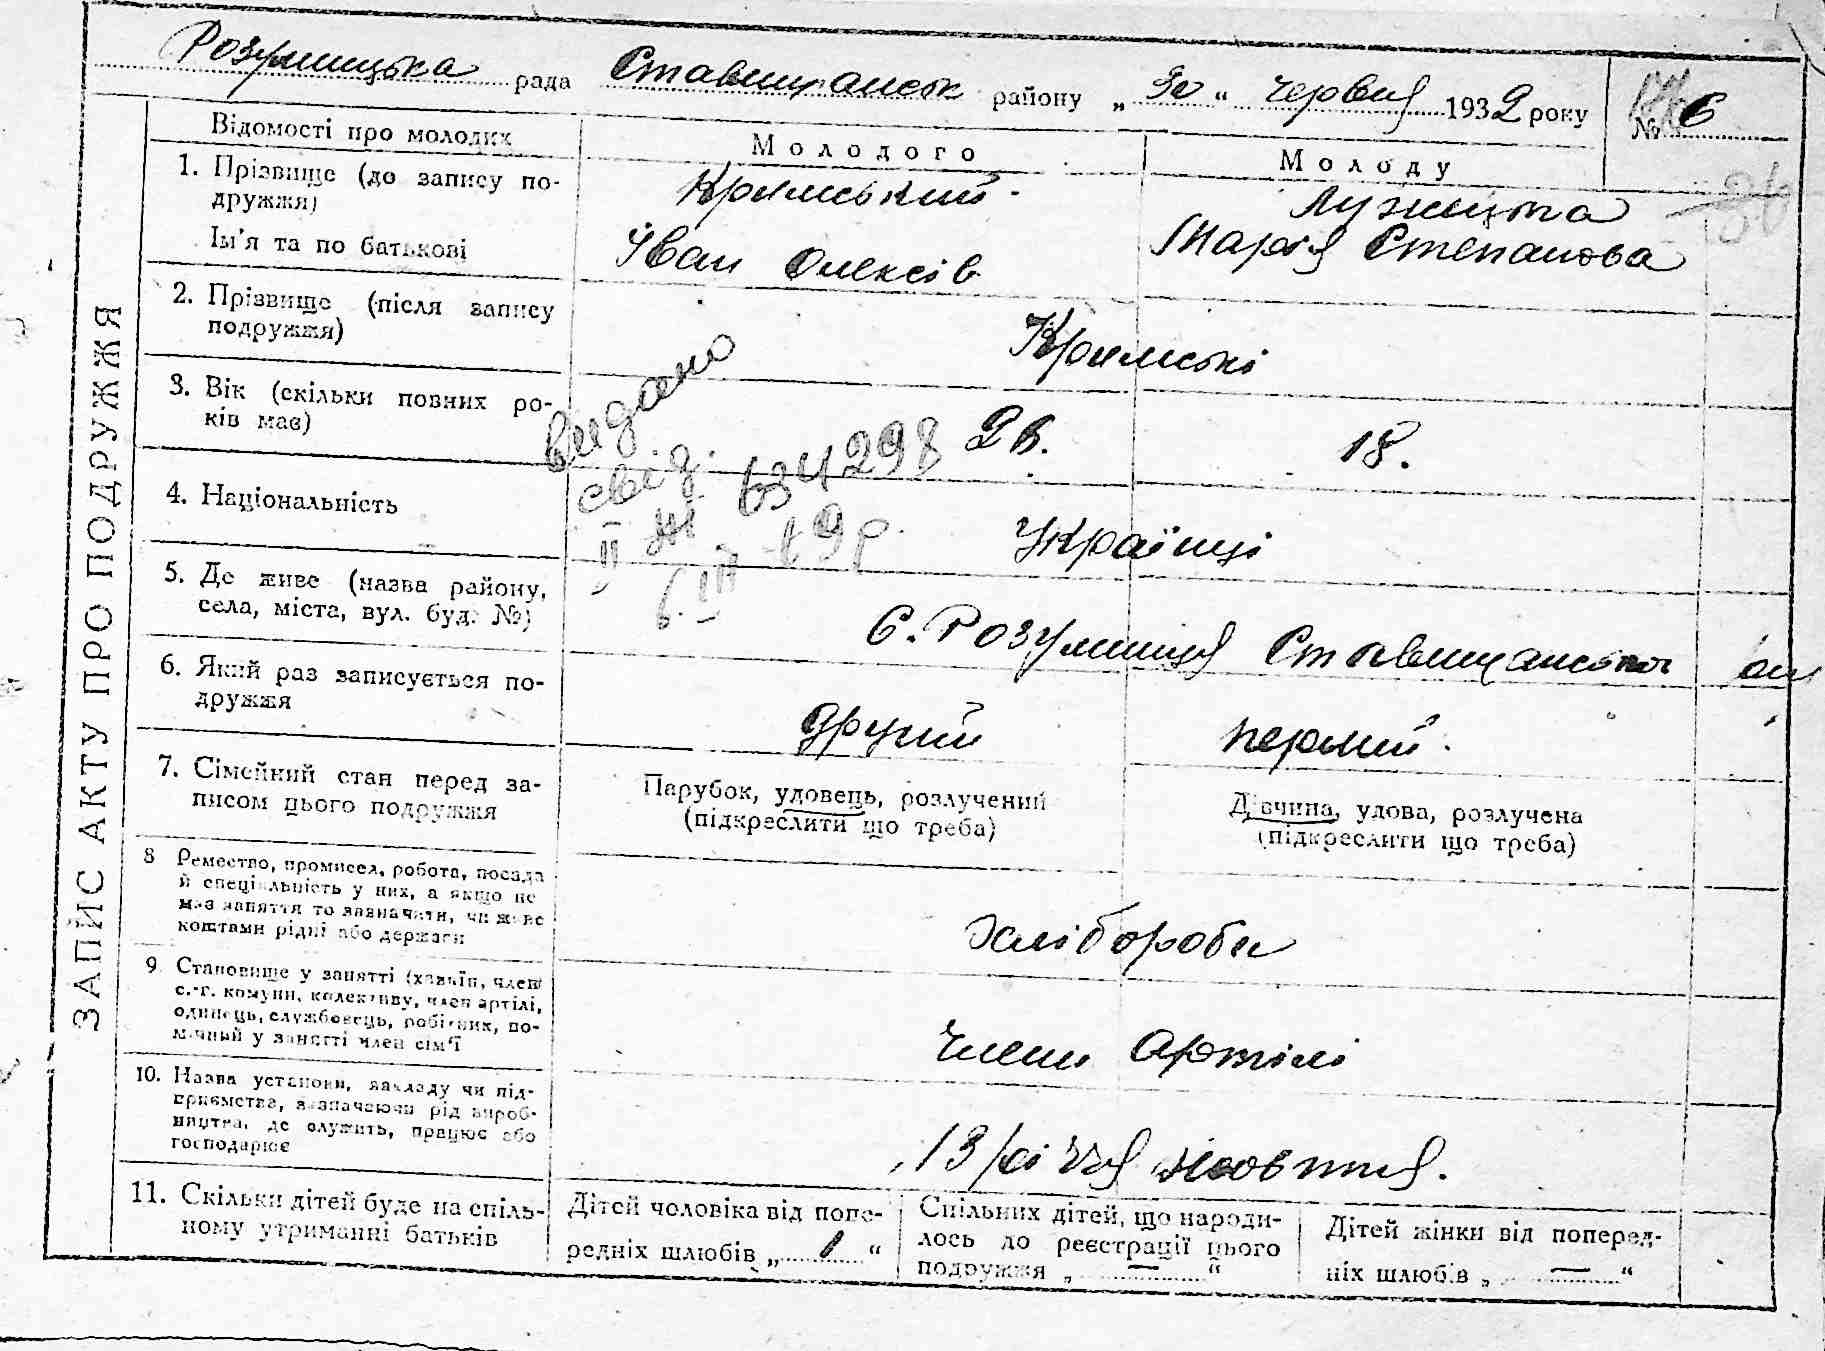 Розумницька рада Ставищанськ району „ 30 “ червня 1932 року
№ 6
ЗАПИС АКТУ ПРО ПОДРУЖЖЯ
Відомості про молодих
Молодого
Молоду
1. Прізвище (до запису по-
дружжя)
Кримський
Лужицька
Ім'я та по батькові
Іван Олексів
Марія Степанова
2. Прізвище (після запису
подружжя)
Кримські
3. Вік (скільки повних ро-
ків має)
18.
видано
свід.
634298
4. Національність
Українці
5. Де живе (назва району,
села, міста, вул. буд. №)
С. Розумниця Ставищанського
6. Який раз записується по-
дружжя
другий
первий.
7. Сімейний стан перед за-
писом цього подружжя
Парубок, удовець, розлучений
(підкреслити що треба)
Дівчина, удова, розлучена
(підкреслити що треба)
8 Ремество, промисел, робота, посада
й спеціяльність у них, а якщо не
має заняття то зазначити, чи живе
коштами рідні або держави
хлібороби
9. Становище у занятті (хазяїн, член
с.-г. комуни, колективу, член артілі,
одинець, службовець, робітник, по-
мічний у занятті член сім'ї
Члени Артілі
10. Назва установи, закладу чи під-
приємства, зазначаючи рід вироб-
ництва, де служить, працює або
господарює
13 річчя жовтня.
11. Скільки дітей буде на спіль-
ному утриманні батьків
Дітей чоловіка від попе-
редніх шлюбів „ 1 “
Спільних дітей, що народи-
лось до реєстрації цього
подружжя „ — “
Дітей жінки від поперед-
ніх шлюбів „ — “